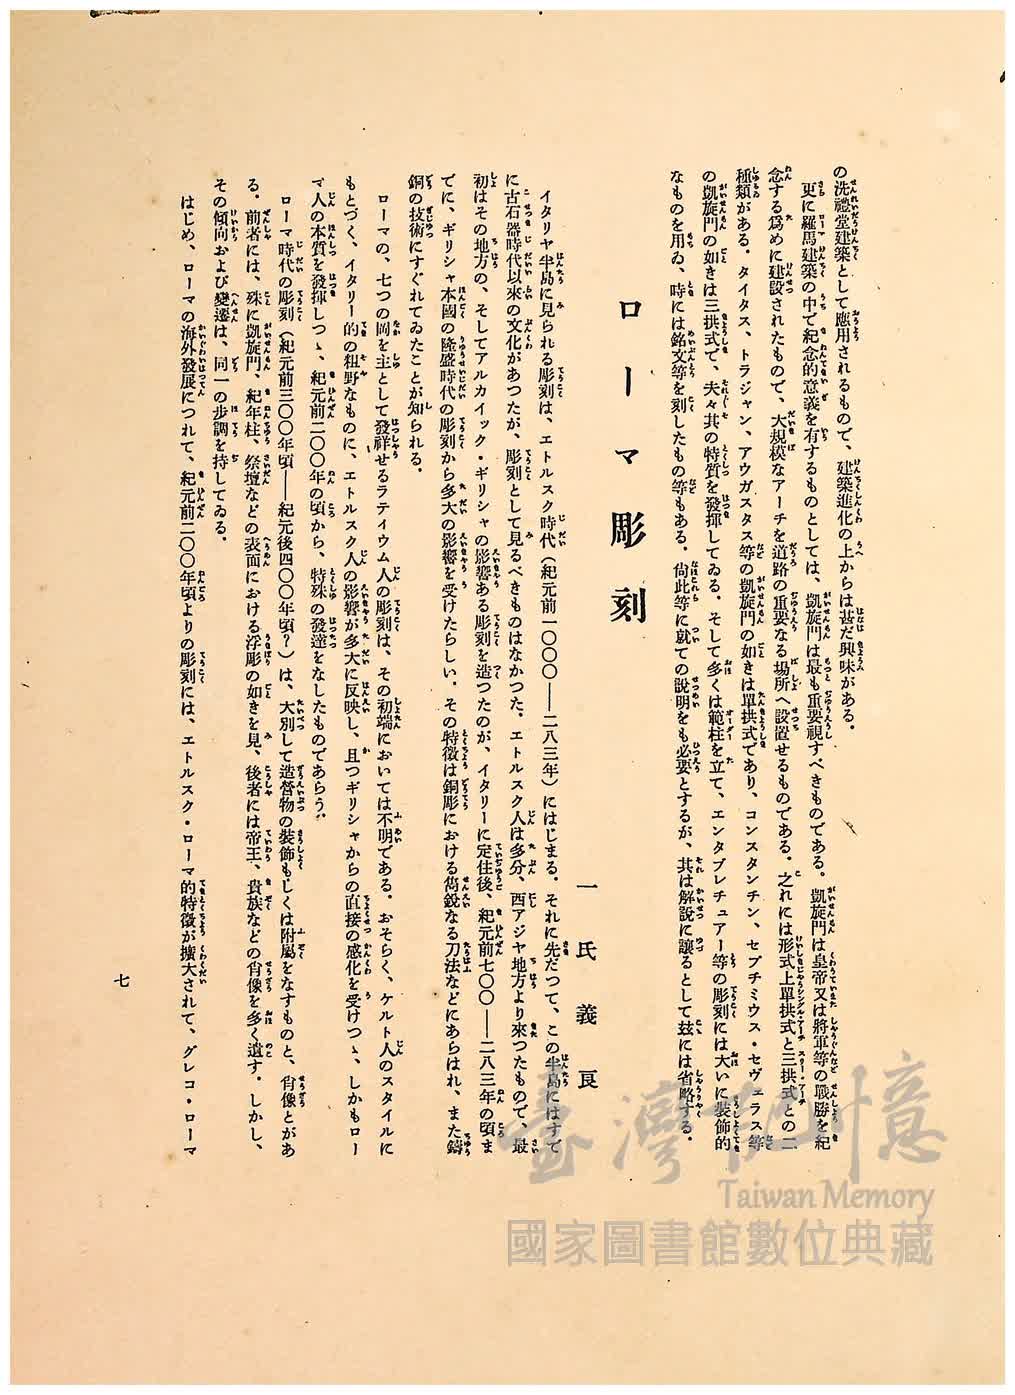 の洗禮堂建築として應用されるもので、建築進化の上からは甚だ興味がある。
更に羅馬建築の中で紀念的意義を有するものとしては、凱旋門は最も重要視すべきものである。凱旋門は皇帝又は將軍等の戰勝を紀
念する爲めに建設されたもので、大規模なアーチを道路の重要なる場所へ設置せるものである。之れには形式上單拱式と三拱式との二
種類がある。タイタス、トラジャン、アウガスタス等の凱旋門の如きは單拱式であり、コンスタンチン、セプチミウス・セヴェラス等
の凱旋門の如きは三拱式で、夫々其の特質を發揮してゐる。そして多くは範柱を立て、エンタブレチュアー等の彫刻には大いに裝飾的
なものを用ゐ、時には銘文等を刻したもの等もある。尙此等に就ての說明をも必要とするが、其は解說に讓るとして玆には省略する。
ローマ彫刻
一氏義良
イタリヤ半島に見られる彫刻は、エトルスク時代（紀元前一〇〇〇——二八三年）にはじまる。それに先だつて、この半島にはすで
に古石器時代以來の文化があつたが、彫刻として見るべきものはなかつた。エトルスク人は多分、西アジヤ地方より來つたもので、最
初はその地方の、そしてアルカイック・ギリシャの影響ある彫刻を造つたのが、イタリーに定住後、紀元前七〇〇——二八三年の頃ま
でに、ギリシャ本國の隆盛時代の彫刻から多大の影響を受けたらしい。その特徵は銅彫における銳なる刀法などにあらはれ、また鑄
銅の技術にすぐれてゐたことが知られる。
ローマの、七つの岡を主として發祥せるラティウム人の彫刻は、その初端においては不明である。おそらく、ケルト人のスタイルに
もとづく、イタリー的の粗野なものに、エトルスク人の影響が多大に反映し、且つギリシャからの直接の感化を受けつゝ、しかもロー
マ人の本質を發揮しつゝ、紀元前二〇〇年の頃から、特殊の發達をなしたものであらう。
ローマ時代の彫刻（紀元前三〇〇年頃——紀元後四〇〇年頃？）は、大別して造營物の裝飾もしくは附屬をなすものと、肖像とがあ
る。前者には、殊に凱旋門、紀年柱、祭壇などの表面における浮彫の如きを見、後者には帝王、貴族などの肖像を多く遺す。しかし、
その傾向および變遷は、同一の步調を持してゐる。
はじめ、ローマの海外發展につれて、紀元前二〇〇年頃よりの彫刻には、エトルスク・ローマ的特徵が擴大されて、グレコ・ローマ
七
臺灣記憶
Taiwan Memory
國家圖書館數位典藏